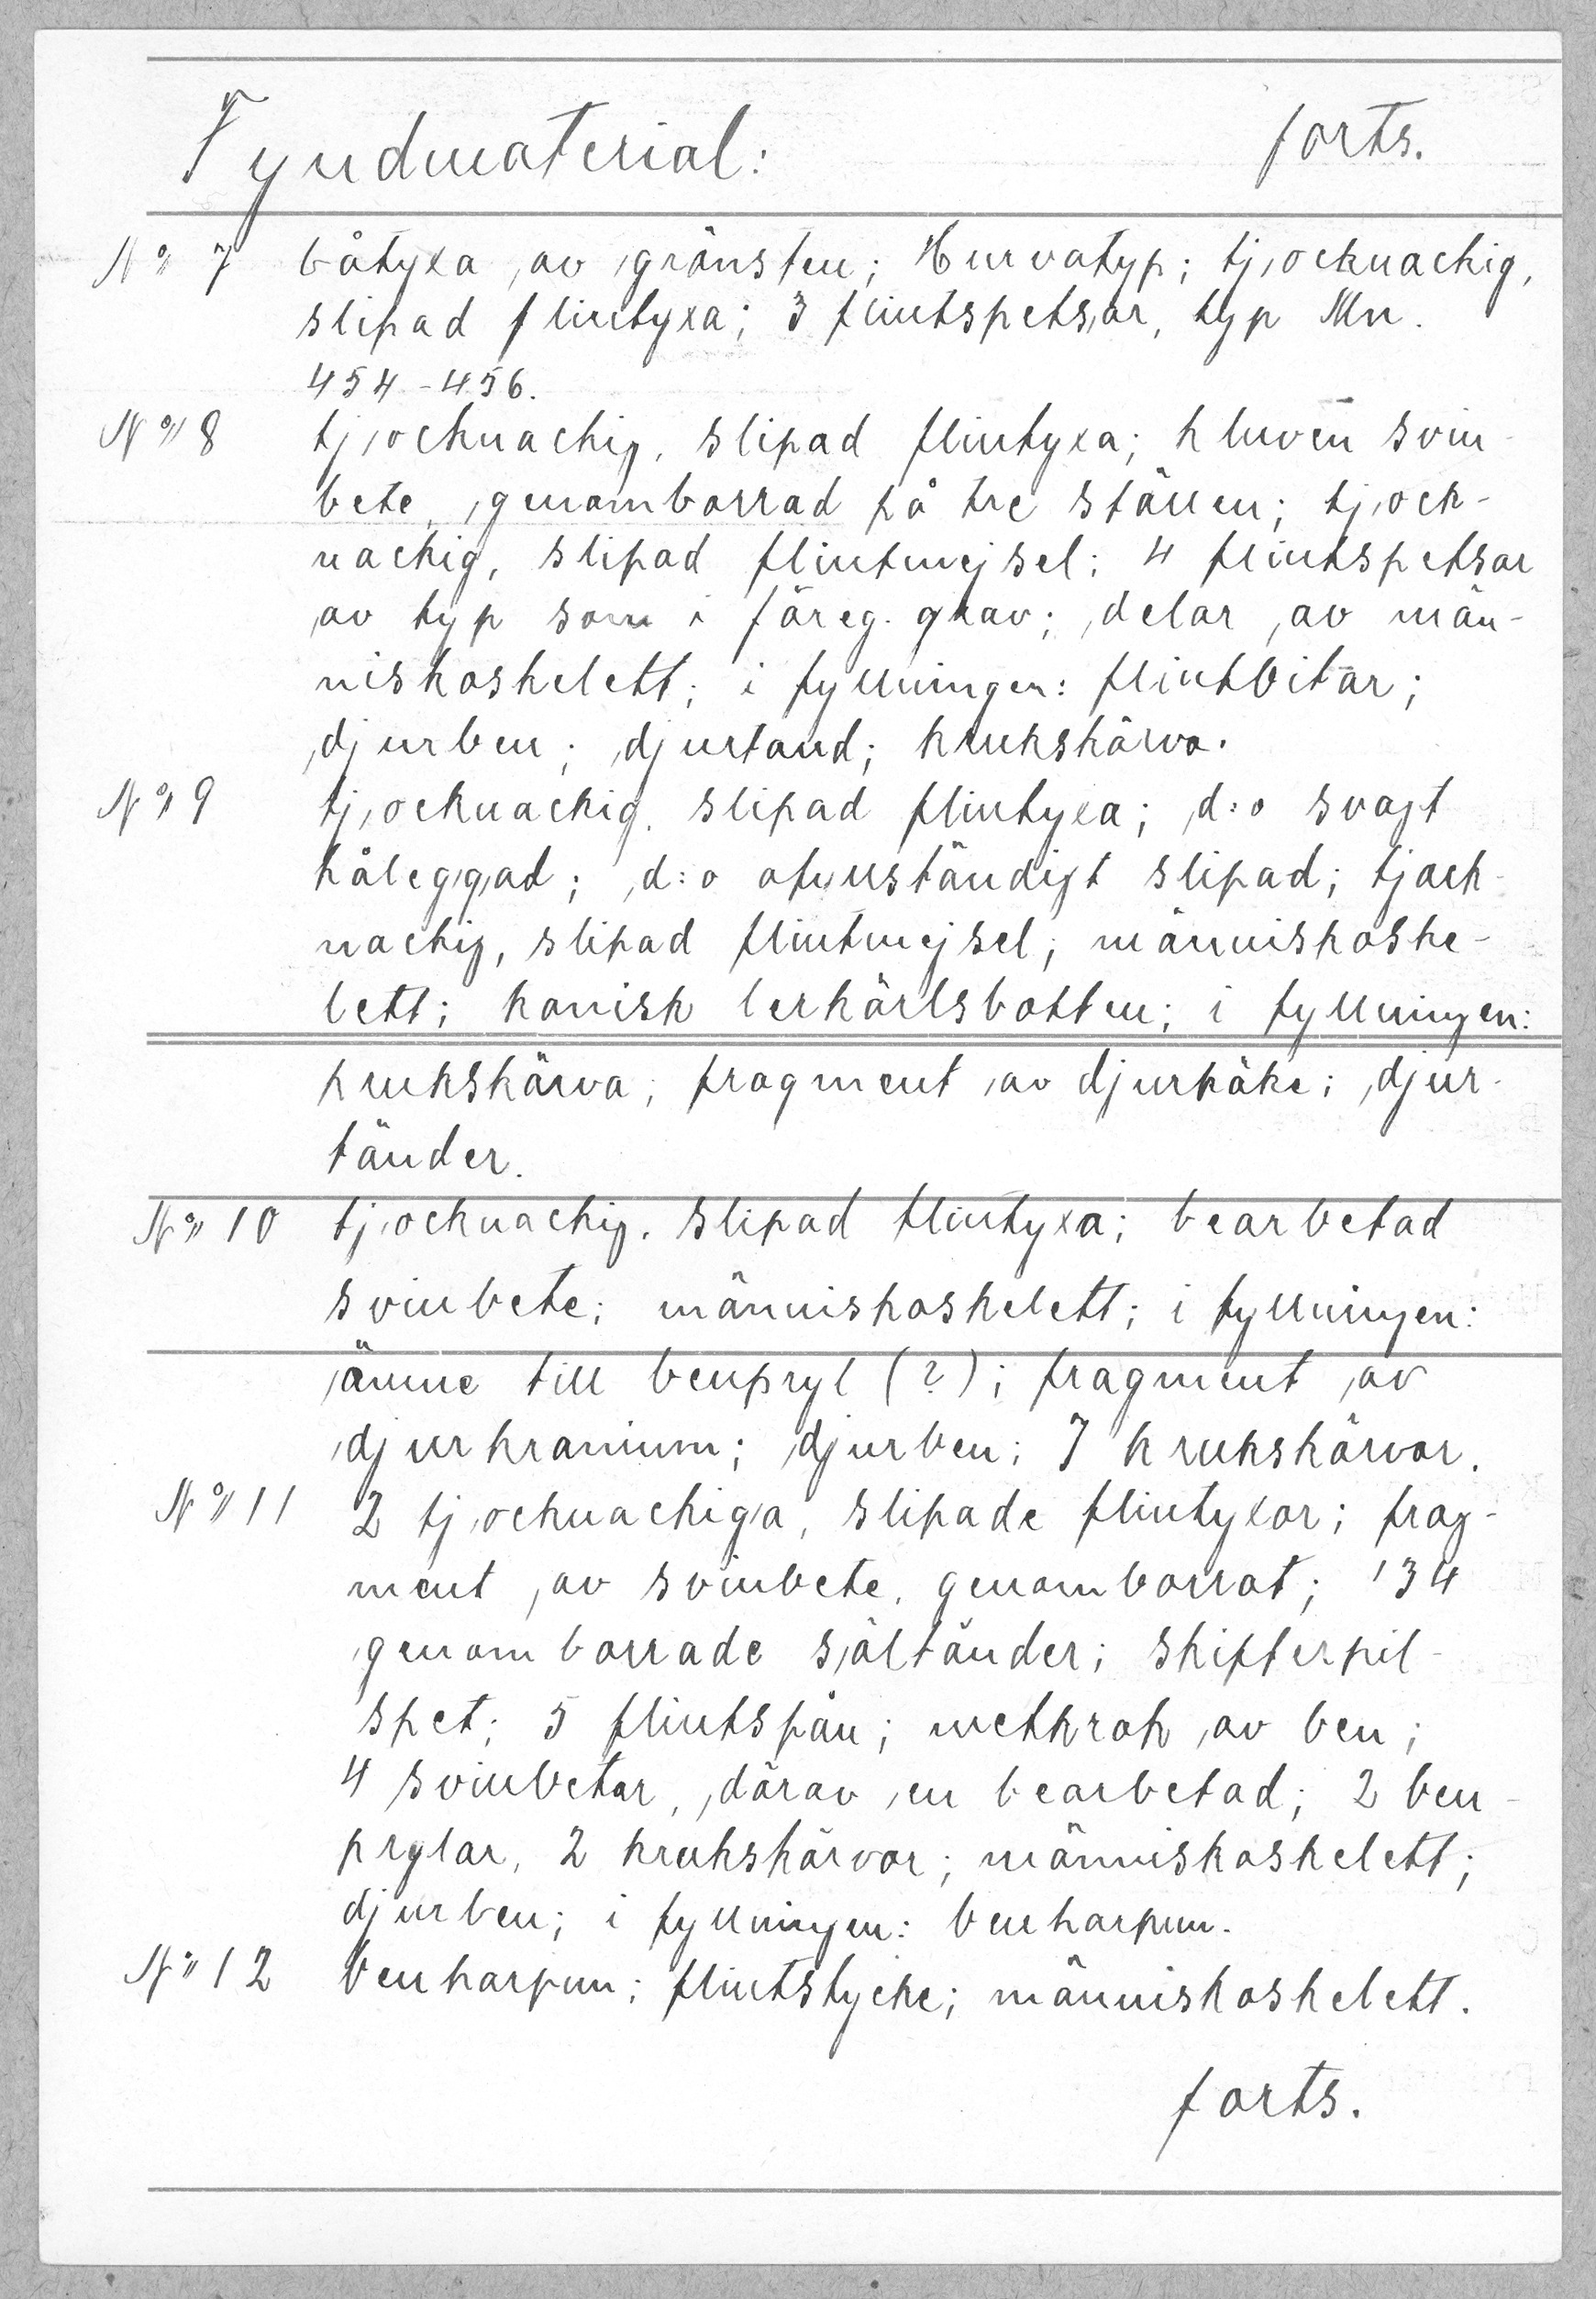 Fyndmaterial: forts.
No 7 båtyxa av grönsten; Hurvatyp; tjocknackig,
slipad flintyxa; 3 flintspetsar, typ Mn.
454-456.
No 8 tjocknackig, slipad flintyxa; kluven svin-
bete, genomborrad på tre ställen; tjock-
nackig, slipad flintmejsel; 4 flintspetsar
av typ som i föreg. grav; delar av män-
niskoskelett; i fyllningen: flintbitar;
djurben; djurtand; krukskärva.
No 9 tjocknackig, slipad flintyxa; d:o svagt
håleggad; d:o ofullständigt slipad; tjock-
nackig, slipad flintmejsel; människoske-
lett; konisk lerkärlsbotten; i fyllningen:
krukskärva; fragment av djurkäke; djur-
tänder.
No 10 tjocknackig, slipad flintyxa; bearbetad
svinbete; människoskelett; i fyllningen:
ämne till benpryl (?); fragment av
djurkranium; djurben; 7 krukskärvor.
No 11 2 tjocknackiga, slipade flintyxor; frag-
ment av svinbete, genomborrat; 134
genomborrade sältänder; skifferpil-
spet; 5 flintspån; metkrok av ben;
4 svinbetar, därav en bearbetad; 2 ben-
prylar, 2 krukskärvor; människoskelett;
djurben; i fyllningen: benharpun.
No 12 benharpun; flintstycke; människoskelett.
forts.